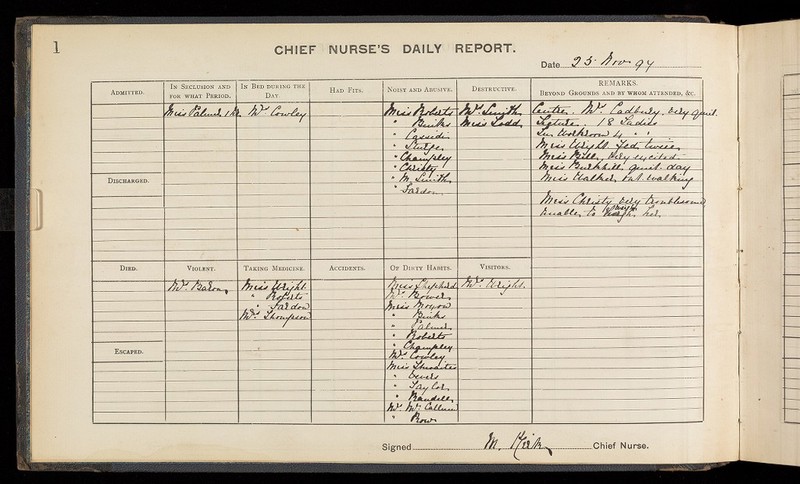 1
CHIEF NURSE'S DAILY REPORT.
Date 25 Nov 94
ADMITTED.
IN SECLUSION AND
FOR WHAT PERIOD.
IN BED DURING THE
DAY.
HAD FITS.
NOISY AND ABUSIVE.
DESTRUCTIVE.
REMARKS.
BEYOND GROUNDS AND BY WHOM ATTENDED, &C.
Miss Palmer
Mrs Cowley
Miss Roberts
" Binks
" Cassidin
"
" Champley
" Christy
" M. Smith
" Fardon
Mrs Smith
Miss Todd
Mrs Cadbury, very quiet.
Lecture. 18 Ladies
Workroom 4 " "
Miss Wright fed twice
Miss Bill, very excited
Miss quiet day
Miss Walker, out walking
Miss Christy very troublesome
unable to weigh her.
DISCHARGED.
DIED.
VIOLENT.
TAKING MEDICINE.
ACCIDENTS.
OF DIRTY HABITS.
VISITORS.
Mrs Baron
Miss Wright
" Roberts
" Fardon
Mrs Thompson
Miss Shepherd
Mrs Bower
Miss
" Binks
" Palmer
" Roberts
" Champley
Mrs Cowley
Miss Thwaites
"
" Taylor
" Randell
Mrs Mc Callum
" Row
Mrs Wright.
ESCAPED.
Signed M. Kirk Chief Nurse.